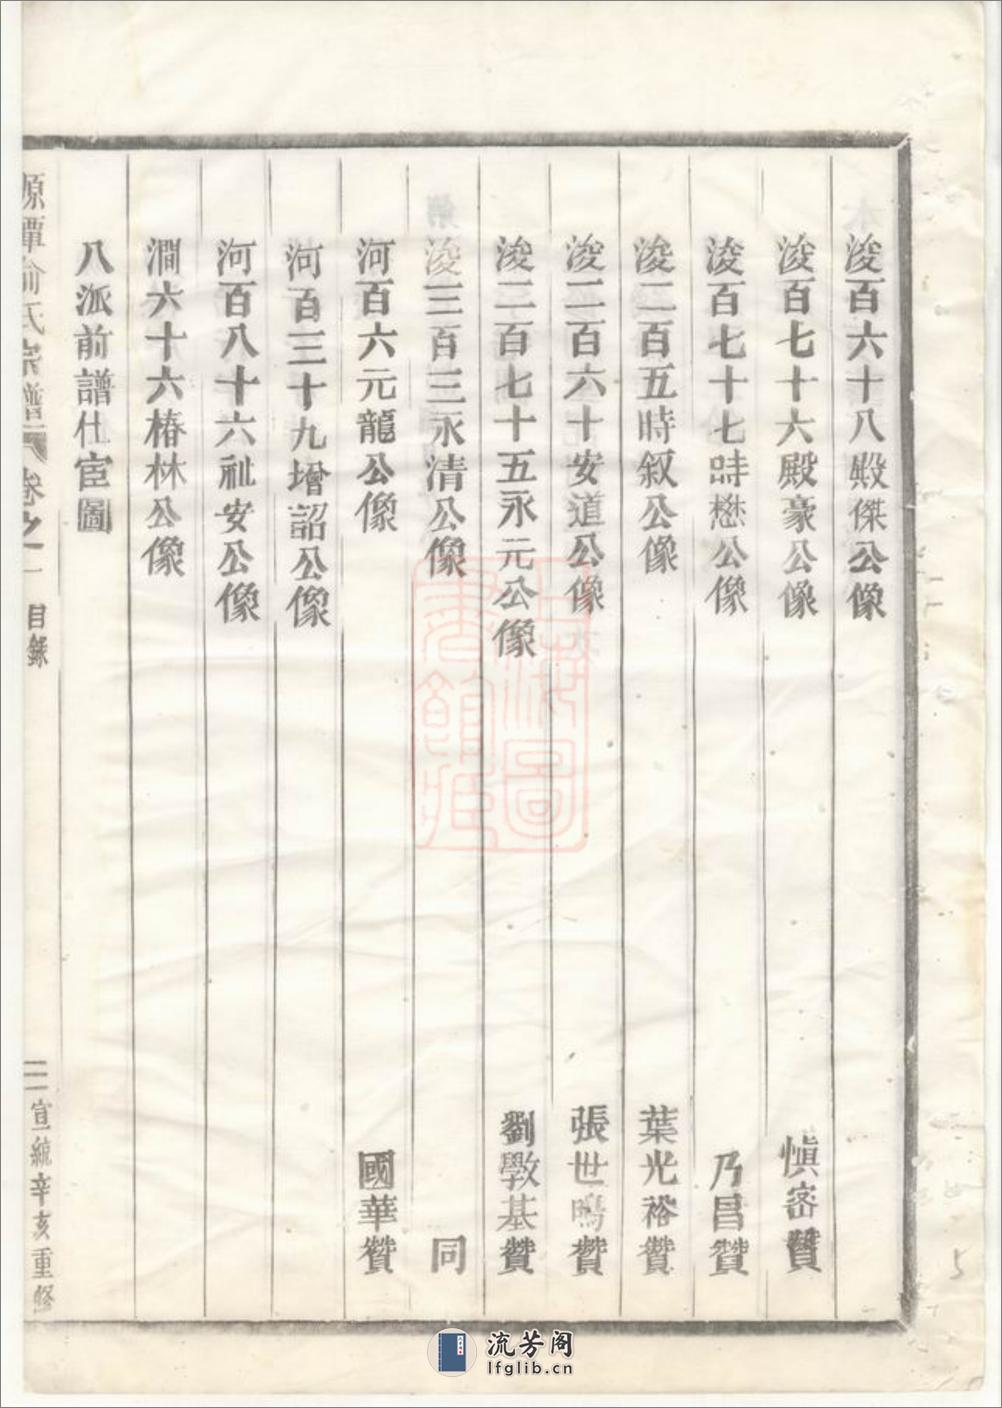 浚百六十八殿傑公像
浚百七十六殿豪公像 慎密贊
浚百七十七時懋公像 乃昌贊
浚二百五時叙公像 葉光裕贊
浚二百六十安道公像 張世鳴贊
浚二百七十五永元公像 劉斆基贊
浚三百三永清公像 同
河百六元龍公像 國華贊
河百三十九增詔公像
河百八十六祉安公像
澗六十六椿林公像
八派前譜仕宦圖
源潭俞氏宗譜 卷之一 目錄 三 宣統辛亥重修
上海圖書館藏
流芳阁
lfglib.cn